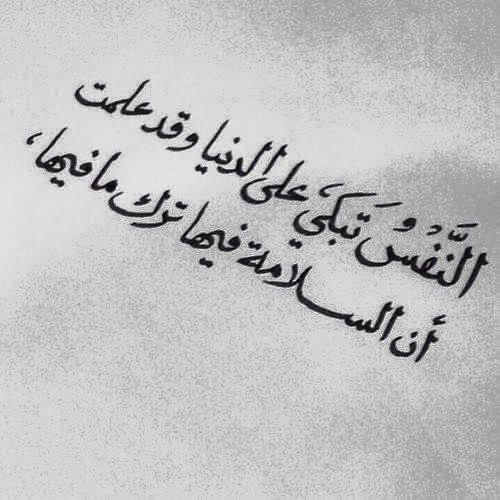 النَّفْسُ تَبكي على الدنيا وقد علمت
أن السلامة فيها ترك ما فيها،